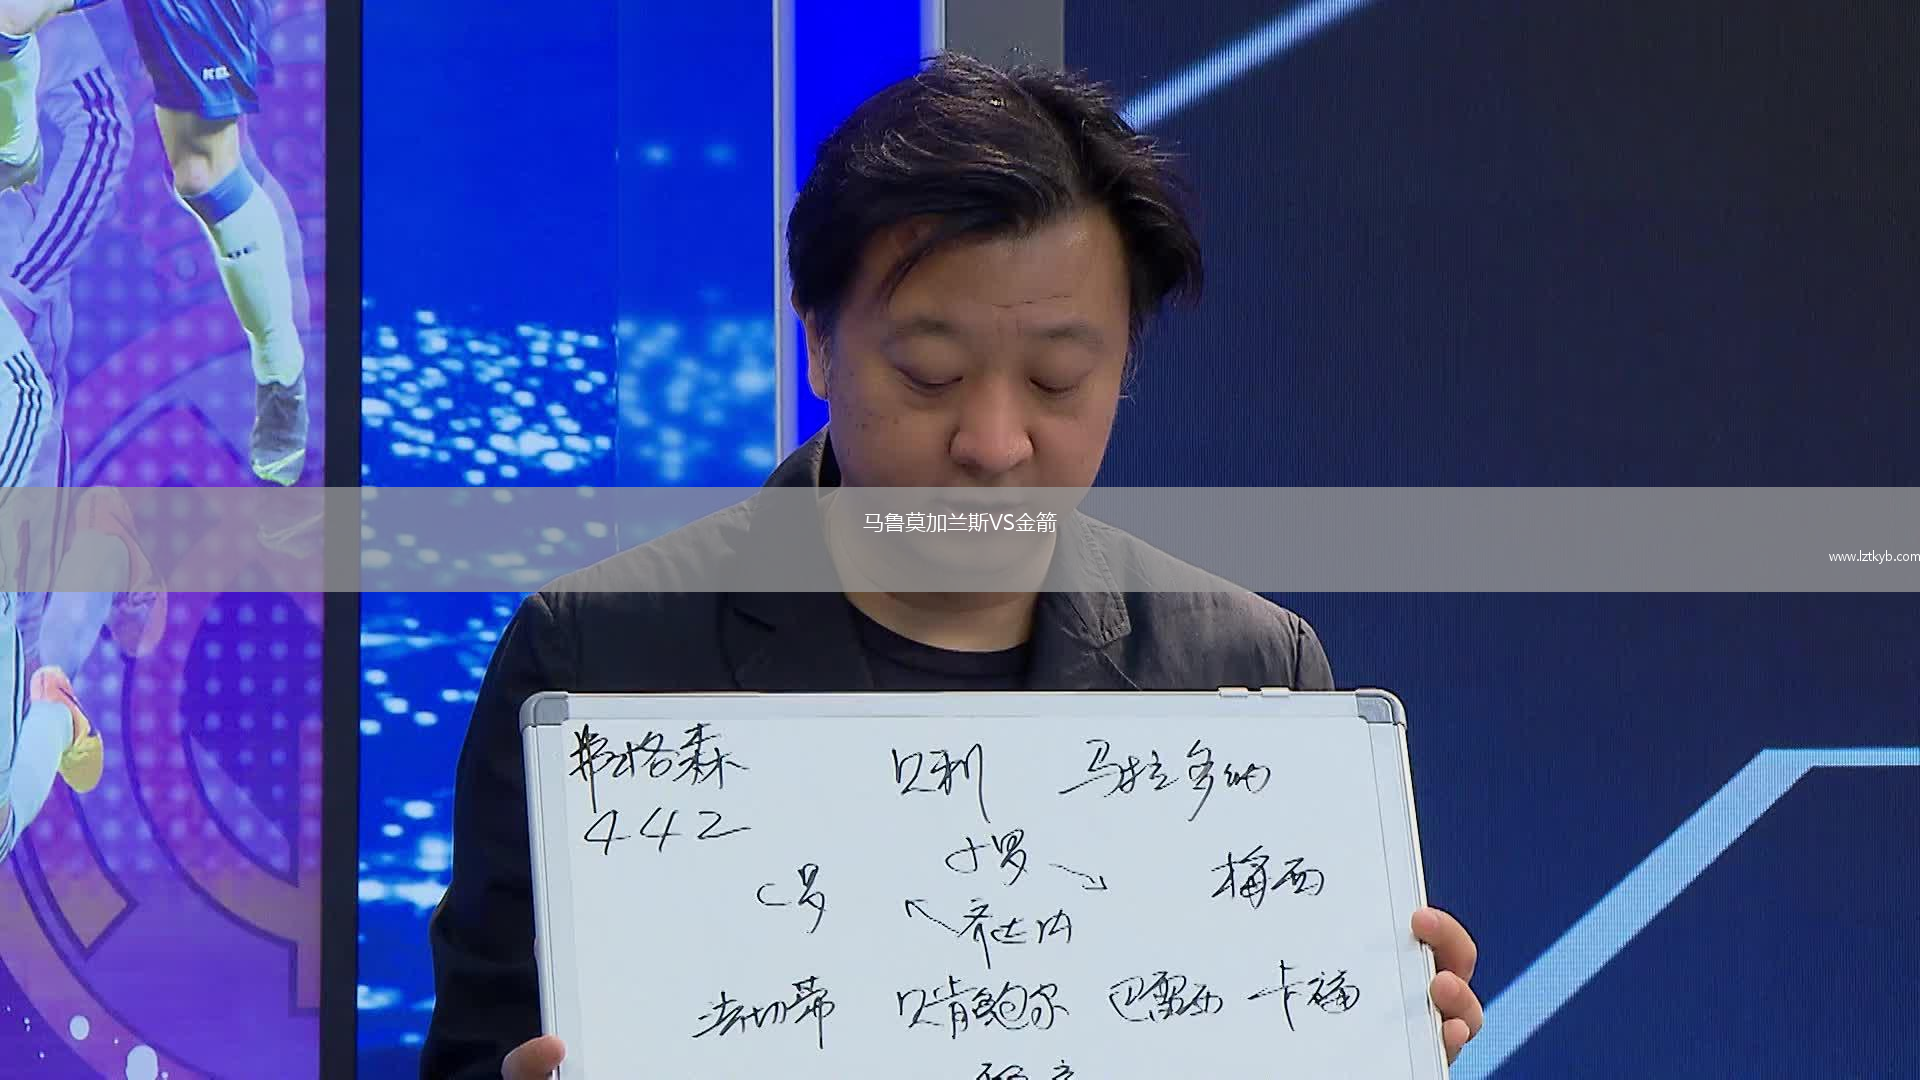 马鲁莫加兰斯VS金箭
www.lztkyb.com
弗格森 贝利 马拉多纳
442
小罗
C罗 梅西
齐达内
法切蒂 贝肯鲍尔 巴雷西 卡福